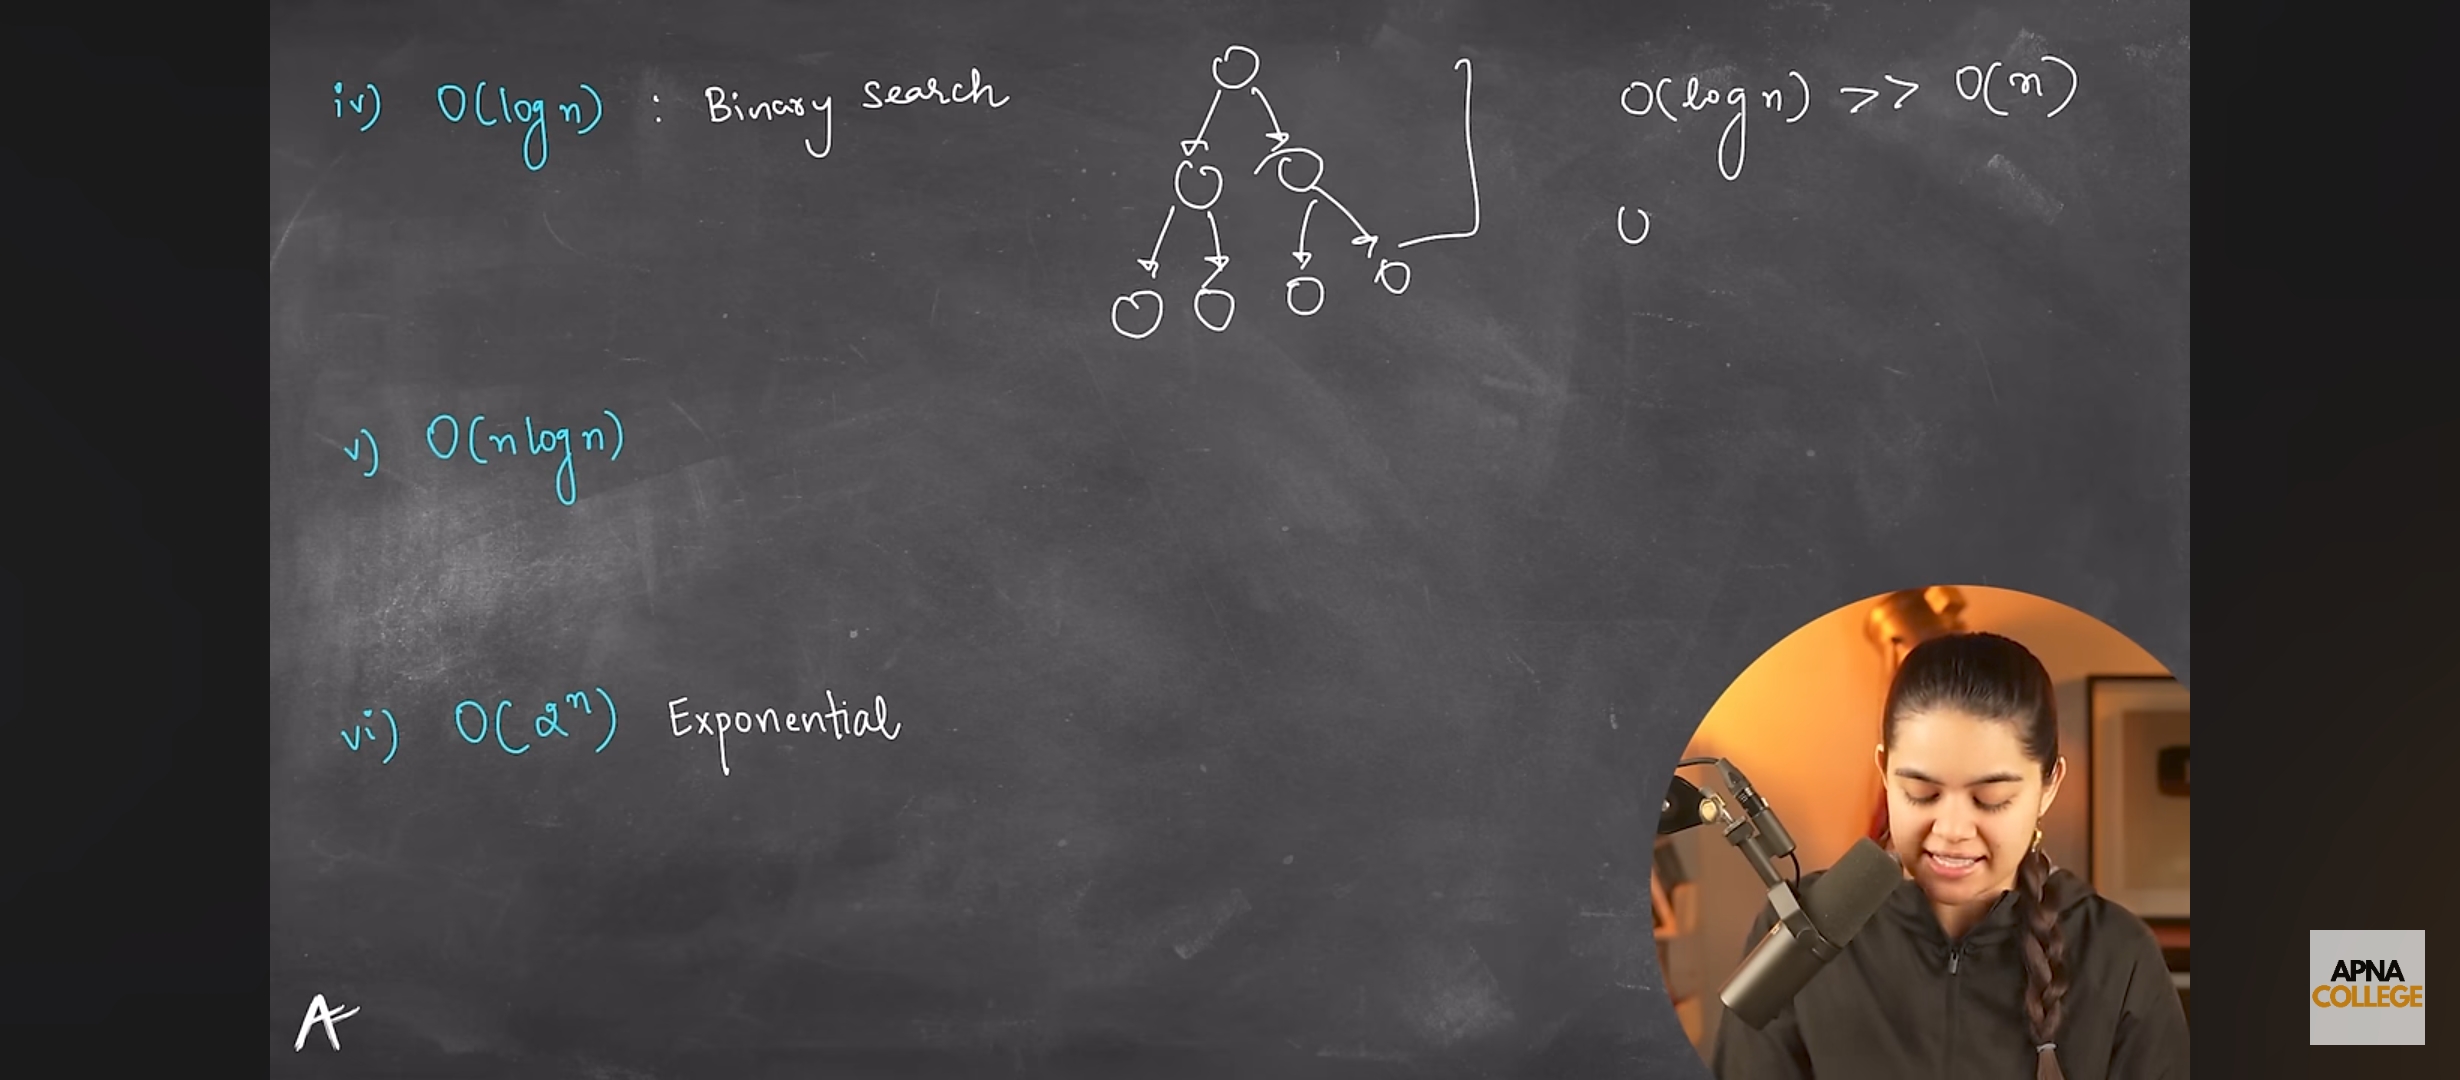 iv) O(log n) : Binary search
O(log n) >> O(n)
O
v) O(n log n)
vi) O(2ⁿ) Exponential
A
APNA
COLLEGE